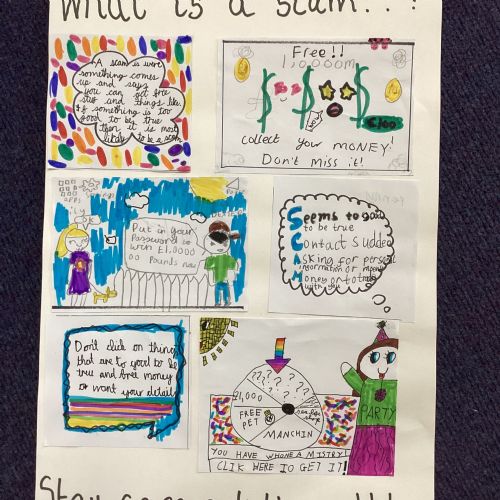 What is a scam..?
A scam is were
something comes
up and says
you can get free
stuf and things like
if something is too
good to be true
then it is most
likely to be a scam
Free!!
collect your MONEY!
Don't miss it!
Put in your
Password to
win £1,0000
00 Pounds now
Seems to good
to be true
Contact sudden
Asking for person
information or
Money or to
with you
Don't click on thing
that are to good to be
true and free money
or want your details
? ? ? ? ? ?
£1,000
FREE
PET
MANCHIN
PARTY
YOU HAVE WHONE A MISTRY!
CLIK HERE TO GET IT!